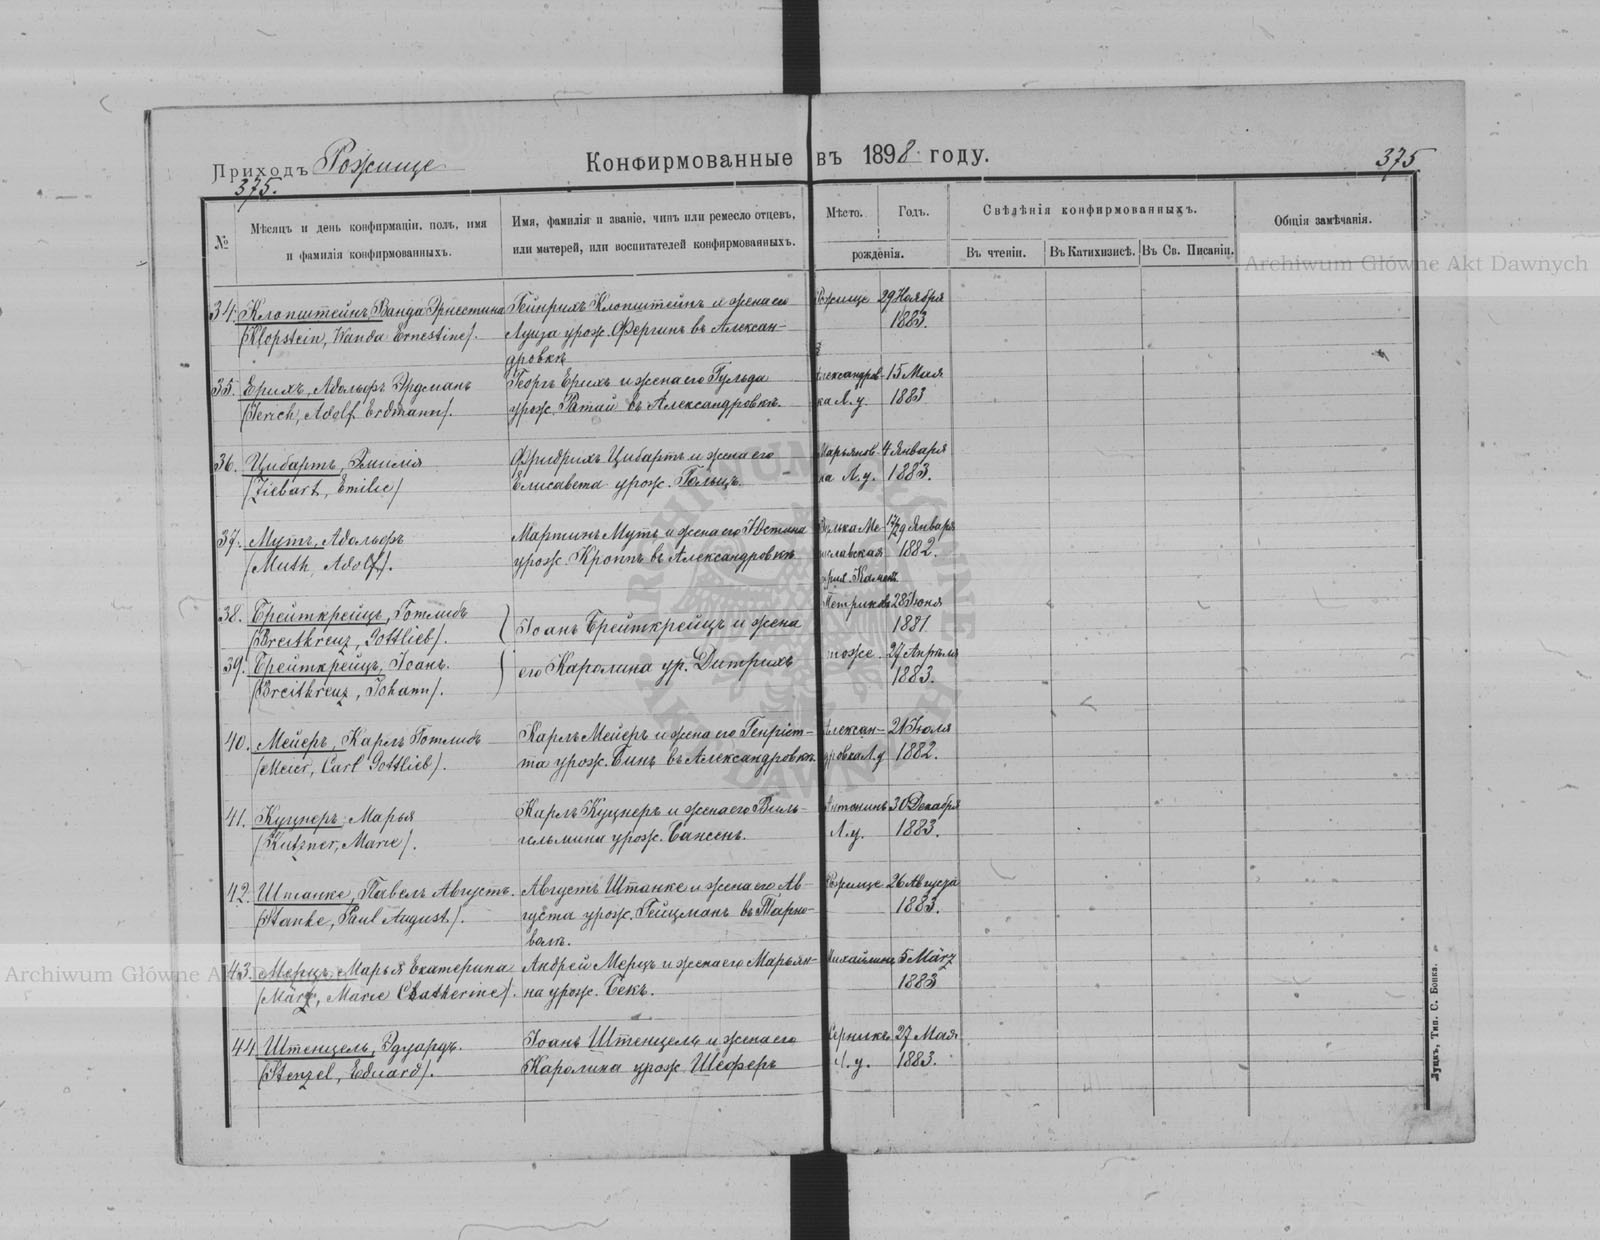 Приходъ Рожище
Конфирмованные въ 1898 году.
375
375.
№
Мѣсяцъ и день конфирмаціи, полъ, имя
и фамилія конфирмованныхъ.
Имя, фамилія и званіе, чинъ или ремесло отцевъ,
или матерей, или воспитателей конфирмованныхъ.
Мѣсто.
Годъ.
рожденія.
Свѣдѣнія конфирмованныхъ.
Въ чтеніи.
Въ Катихизисѣ.
Въ Св. Писаніи.
Общія замѣчанія.
34. Клопштейнъ, Ванда Эрнестина
(Klopstein, Wanda Ernestine).
Гейнрихъ Клопштейнъ и жена его
Луиза урож. Фергинъ въ Алексан-
дровкѣ
29 Ноября
1883.
35. Ерихъ, Адольфъ Эрдманъ
(Jerich, Adolf Erdmann).
Георгъ Ерихъ и жена его Гульда
урож. Ратай въ Александровкѣ.
15 Мая
ка Л. у. 1883
36. Цибартъ, Эмилія
(Ziebart, Emilie)
Фридрихъ Цибартъ и жена его
Елисавета урож. Гольцъ.
Марьянов- 4 Января
ка Л. у. 1883.
37. Мутъ, Адольфъ
(Muth, Adolf).
Мартинъ Мутъ и жена его Юстина
урож. Кроппъ въ Александровкѣ
17/29 Января
1882.
38. Брейткрейцъ, Готлибъ
(Breitkreuz, Gottlieb).
39. Брейткрейцъ, Іоанъ.
(Breitkreuz, Johann).
Іоанъ Брейткрейцъ и жена
его Каролина ур. Дитрихъ
28 Іюня
1881
тоже. 27 Апрѣля
1883.
40. Мейеръ, Карлъ Готлибъ
(Meier, Carl Gottlieb).
Карлъ Мейеръ и жена его Генріет-
та урож. Бинъ въ Александровкѣ
Алексан- 21 Іюля
дровка Л. у 1882.
41. Куцнеръ, Марья
(Kutzner, Marie).
Карлъ Куцнеръ и жена его Виль-
гельмина урож. Бансенъ.
Антонинъ 30 Декабря
Л. у. 1883.
42. Штанке, Павелъ Августъ.
(Stanke, Paul August).
Августъ Штанке и жена его Ав-
густа урож. Гейцманъ въ Тарно-
волѣ.
Рожище 26 Августа
1883.
43. Мерцъ, Марья Екатерина
(März, Marie Catherine).
Андрей Мерцъ и жена его Марьян-
на урож. Бекъ.
5 März
1883
44. Штенцель, Эдуардъ.
(Stenzel, Eduard).
Іоанъ Штенцель и жена его
Каролина урож Шеферъ
27 Мая
Л. у. 1883.
Луцкъ, Тип. С. Бонка.
Archiwum Główne Akt Dawnych
Archiwum Główne Akt Dawnych
ARCHIWUM GŁÓWNE AKT DAWNYCH